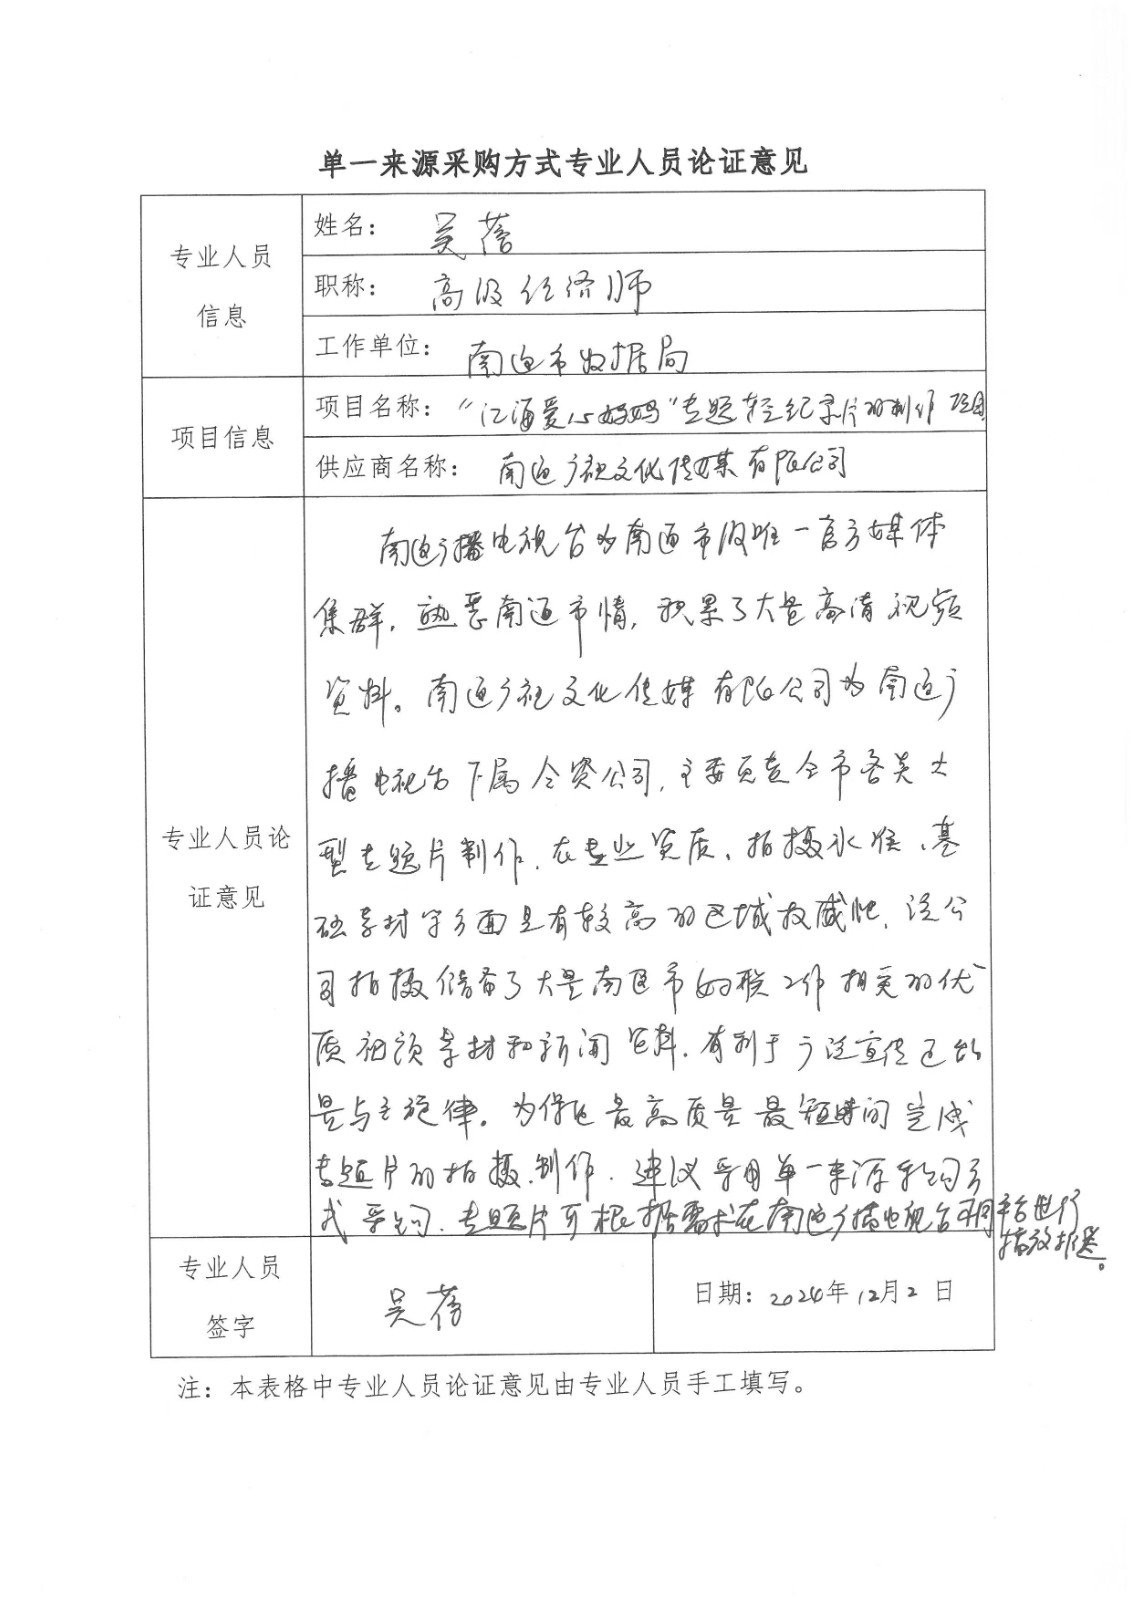 单一来源采购方式专业人员论证意见
专业人员
信息
姓名： 吴蓓
职称： 高级经济师
工作单位： 南通市数据局
项目信息
项目名称：“江海爱心妈妈”专题轻纪录片的制作项目
供应商名称： 南通广视文化传媒有限公司
专业人员论
证意见
南通广播电视台为南通市级唯一官方媒体
集群，熟悉南通市情，积累了大量高清视频
资料。南通广视文化传媒有限公司为南通广
播电视台下属全资公司，主要负责全市各类大
型专题片制作，在专业资质、拍摄水准、基
础素材等方面具有较高的区域权威性，该公
司拍摄储备了大量南通市妇联工作相关的优
质视频素材和新闻资料，有利于广泛宣传
与主旋律。为保证最高质量最短时间完成
专题片的拍摄、制作，建议采用单一来源采购方
式采购，专题片可根据需求在南通广播电视台不同平台进行
播放推送。
专业人员
签字
吴蓓
日期：2024年12月2日
注：本表格中专业人员论证意见由专业人员手工填写。